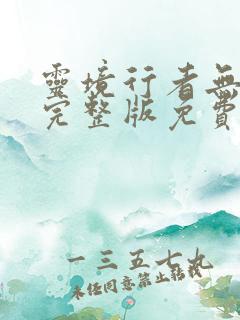 靈境行者無
完整版免費
一三五七九
未經同意禁止轉載